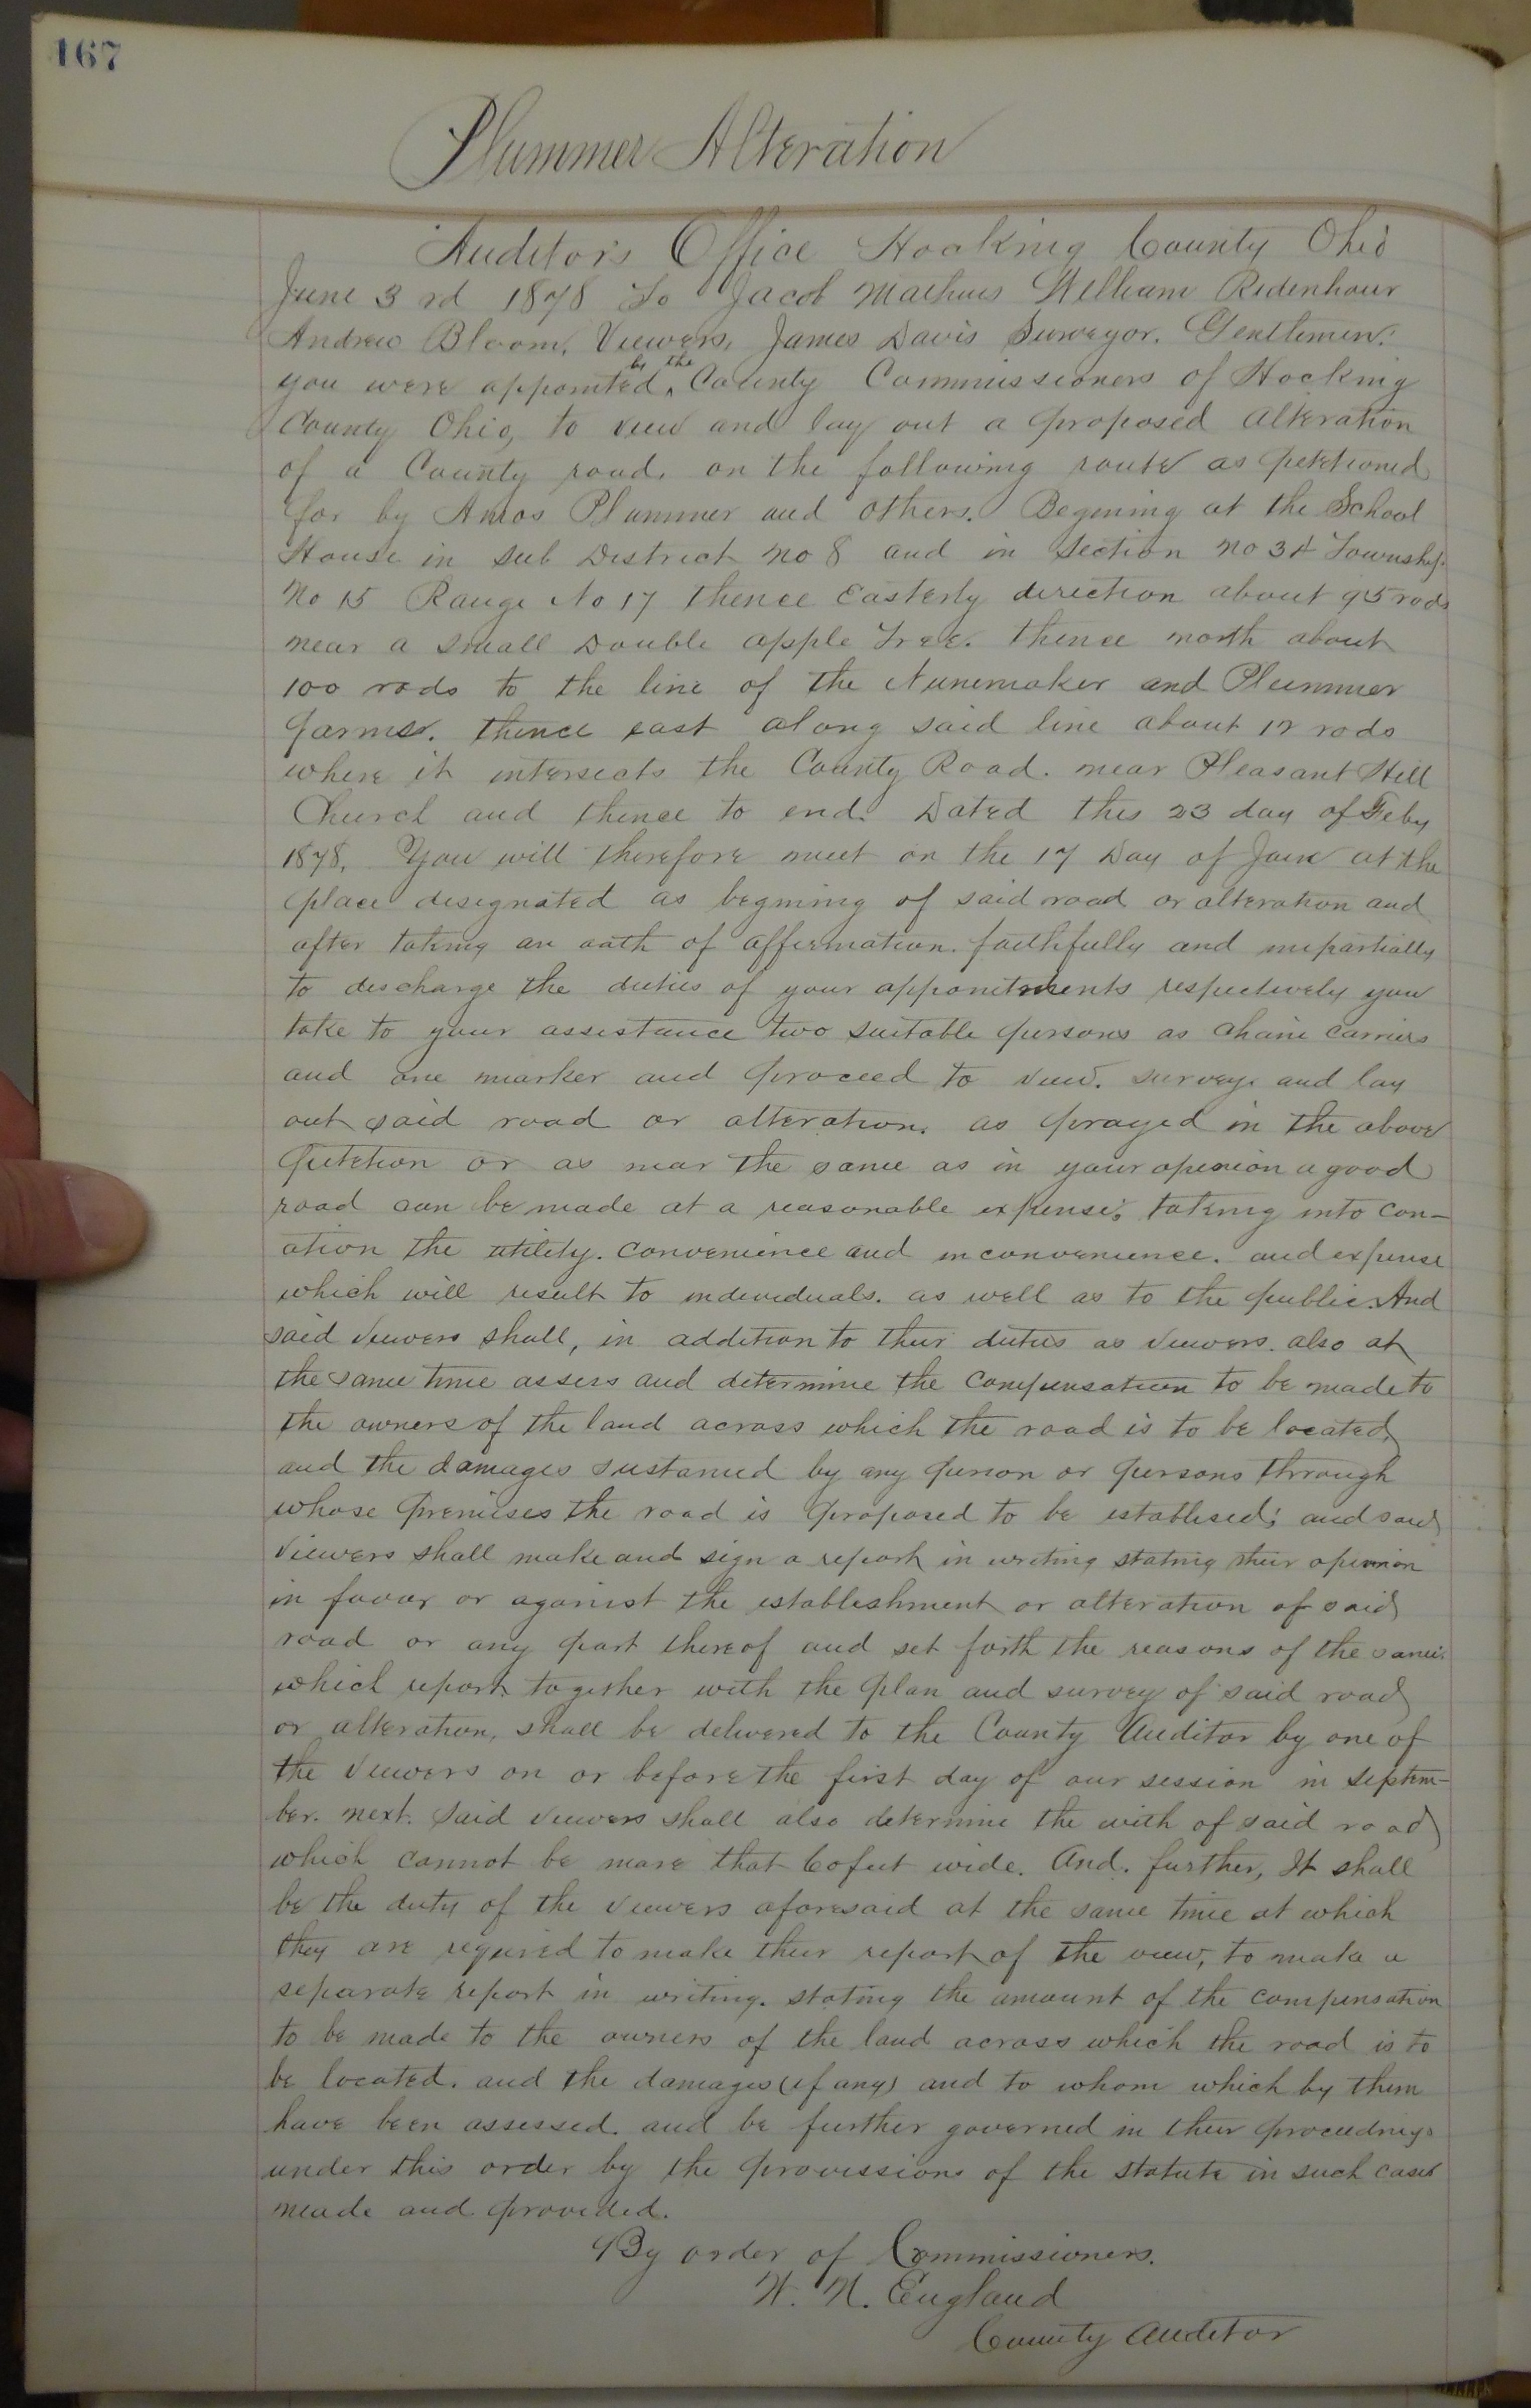 167
Plummer Alteration
Auditor's Office Hocking County Ohio
June 3rd 1878 To Jacob Mathius William Ridenhour
Andrew Bloom, Viewers, James Davis Surveyor. Gentlemen:
you were appointed by the County Commissioners of Hocking
County Ohio, to view and lay out a proposed alteration
of a County road, on the following route as petetioned
for by Amos Plummer and others. Begining at the School
House in sub District no 8 and in Section no 34 Township
No 15 Range No 17 thence Easterly direction about 95 rods
near a small Double apple Tree. thence north about
100 rods to the line of the Nunemaker and Plummer
farms. thence east along said line about 12 rods
where it interseats the County Road. near Pleasant Hill
Church and thence to end. Dated this 23 day of Feby
1878. You will therefore meet on the 17 Day of June at the
place designated as begining of said road or alteration and
after taking an oath of affirmation. faithfully and impartially
to descharge the duties of your appointments respectively you
take to your assistance two suitable persons as chain carriers
and one marker and proceed to view. survey. and lay
out said road or alteration. as prayed in the above
petetion or as near the same as in your openion a good
road can be made at a reasonable expense; taking into con-
ation the utility. convenience and inconvenience. and expense
which will result to individuals. as well as to the public. And
said viewers shall, in addition to their duties as viewers. also at
the same time assess and determine the compensation to be made to
the owners of the land across which the road is to be located,
and the damages sustained by any person or persons through
whose premises the road is proposed to be establised; and said
viewers shall make and sign a report in writing stating their opinion
in favor or against the establishment or alteration of said
road or any part thereof and set forth the reasons of the same.
which report together with the plan and survey of said road
or alteration, shall be delivered to the County Auditor by one of
the viewers on or before the first day of our session in Septem-
ber. next. Said viewers shall also determine the with of said road
which cannot be more that 60 feet wide. And. further, It shall
be the duty of the viewers aforesaid at the same time at which
they are required to make their report of the view, to make a
separate report in writing. stating the amount of the compensation
to be made to the owners of the land across which the road is to
be located. and the damages (if any) and to whom which by them
have been assessed. and be further governed in their proceedings
under this order by the provissions of the statute in such cases
made and provided.
By order of Commissioners.
W. N. England
County Auditor